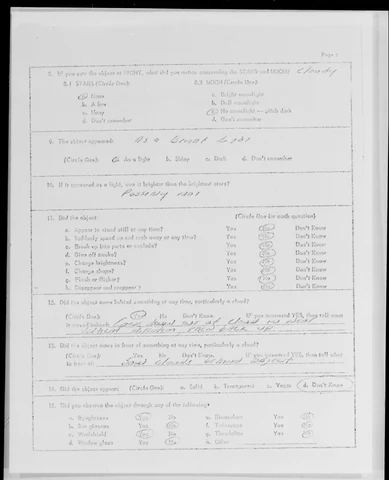 Page
8. If you saw the object at NIGHT, what did you notice concerning the STARS and MOON? Cloudy
8.1 STARS (Circle One): 8.2 MOON (Circle One):
a. None a. Bright moonlight
b. A few b. Dull moonlight
c. Many c. No moonlight — pitch dark
d. Don't remember d. Don't remember
9. The object appeared: As a Bright Light
(Circle One): a. As a light b. Shiny c. Dark d. Don't remember
10. If it appeared as a light, was it brighter than the brightest stars?
11. Did the object: (Circle One for each question)
a. Appear to stand still at any time? Yes No Don't Know
b. Suddenly speed up and rush away at any time? Yes No Don't Know
c. Break up into parts or explode? Yes No Don't Know
d. Give off smoke? Yes No Don't Know
e. Change brightness? Yes No Don't Know
f. Change shape? Yes No Don't Know
g. Flash or flicker? Yes No Don't Know
h. Disappear and reappear? Yes No Don't Know
12. Did the object move behind something at any time, particularly a cloud?
(Circle One): Yes No Don't Know. If you answered YES, then tell what
it moved behind:
13. Did the object move in front of something at any time, particularly a cloud?
(Circle One): Yes No Don't Know. If you answered YES, then tell what
in front of:
14. Did the object appear: (Circle One): a. Solid b. Transparent c. Vapor d. Don't Know
15. Did you observe the object through any of the following?
a. Eyeglasses Yes No e. Binoculars Yes No
b. Sun glasses Yes No f. Telescope Yes No
c. Windshield Yes No g. Theodolite Yes No
d. Window glass Yes No h. Other